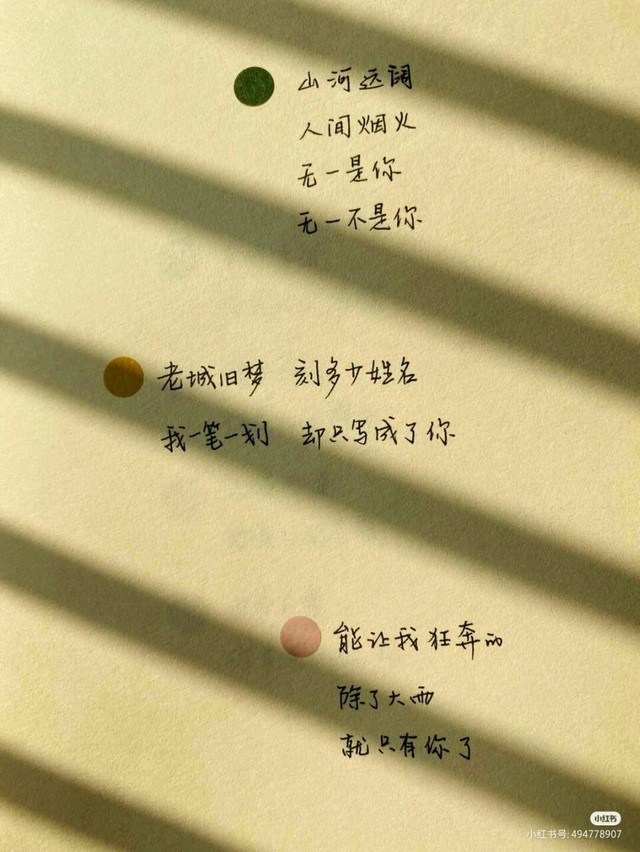 山河远阔
人间烟火
无一是你
无一不是你
老城旧梦 刻多少姓名
我一笔一划 却只写成了你
能让我狂奔的
除了大雨
就只有你了
小红书
小红书号: 494778907